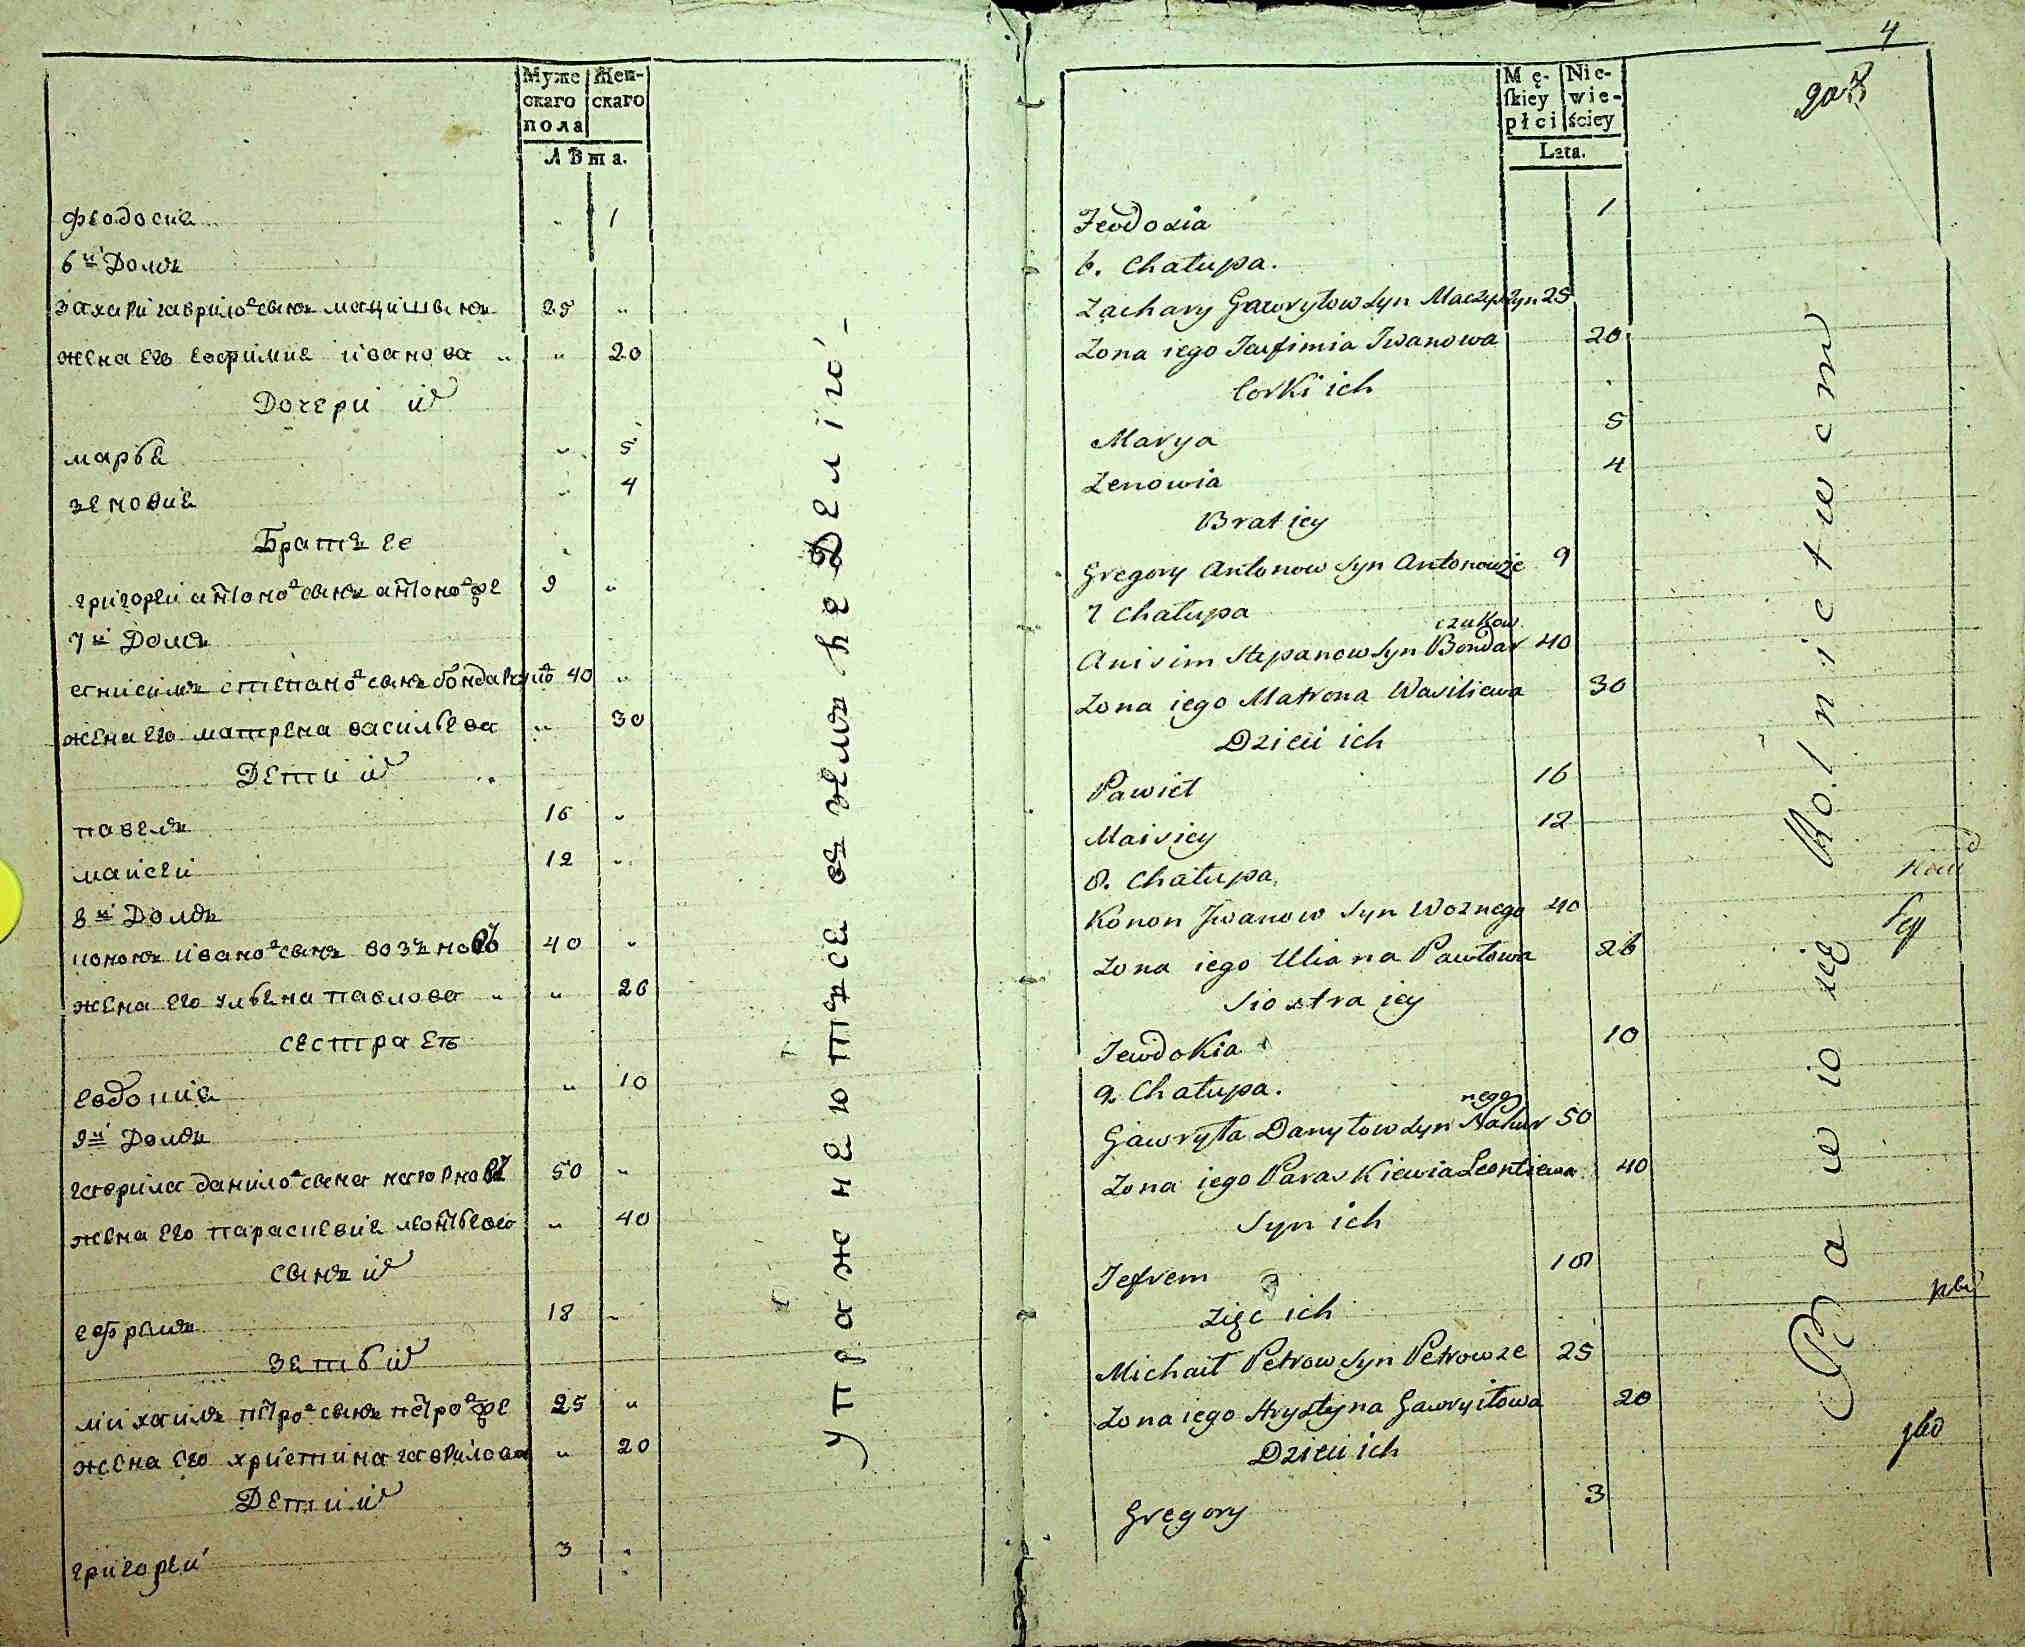 Муже Жен-
скаго скаго
пола
Лѣта.
феодосиа " 1
6й Домъ
захари гаврило в сынъ мацишынъ 25 "
жена его евфимие иванова " 20
Дочери их
марья " 5
зеновие " 4
Братъ ее
григореи антоно в сынъ антоно в же 9 "
7й Домъ
егнисимъ степано в сынъ бондарчуко в 40 "
жена его матрена васильева " 30
Дети их
павелъ 16 "
маисеи 12 "
8й Домъ
конона ивано в сынъ возного 40 "
жена его ульена павлова " 26
сестра еѣ
евдокиа " 10
9й Домъ
гаврила данило в сына нагорного 50 "
жена его параскевие леонтьева " 40
сынъ их
ефремъ 18 "
зеть их
михаилъ петро в сынъ петро в же 25 "
жена его христина гаврилова " 20
Дети их
григореи 3 "
упражнеютъсе въ землѣ неделіѡ
4
Mę- Nie-
skiey wie-
płci ściey
Lata.
Jeodozia 1
6. Chałupa.
Zachary Gawryłow syn Maczyszyn 25
Zona iego Jeufimia Iwanowa 20
Corki ich
Marya 5
Zenowia 4
Brat iey
Gregory Antonow syn Antonowże 9
7 Chałupa
czukow
Anisim Stepanow syn Bondar 40
Zona iego Matrona Wasiliewa 30
Dzieci ich
Paweł 16
Maisiey 12
8. Chałupa
Konon Iwanow syn Woznego 40
Zona iego Uliana Pawłowa 26
Siostra iey
Jewdokia 10
9. Chałupa.
nego
Gawryła Danyłow syn Nahor 50
Zona iego Paraskiewia Leontiewa 40
Syn ich
Jefrem 18
Zięc ich
Michaił Petrow syn Petrowże 25
Zona iego Hrystyna Gawryłowa 20
Dzieci ich
Gregory 3
Bawio się Rolnictwem